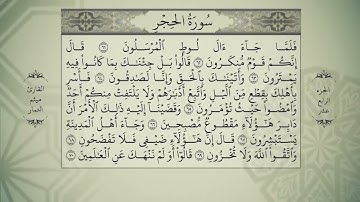 سُورَةُ الحِجْر
فَلَمَّا جَآءَ ءَالَ لُوطٍ الْمُرْسَلُونَ ۝٦١ قَالَ
إِنَّكُمْ قَوْمٌ مُّنكَرُونَ ۝٦٢ قَالُوا۟ بَلْ جِئْنَٰكَ بِمَا كَانُوا۟ فِيهِ
يَمْتَرُونَ ۝٦٣ وَأَتَيْنَٰكَ بِالْحَقِّ وَإِنَّا لَصَٰدِقُونَ ۝٦٤ فَأَسْرِ
بِأَهْلِكَ بِقِطْعٍ مِّنَ الَّيْلِ وَاتَّبِعْ أَدْبَٰرَهُمْ وَلَا يَلْتَفِتْ مِنكُمْ أَحَدٌ
وَامْضُوا۟ حَيْثُ تُؤْمَرُونَ ۝٦٥ وَقَضَيْنَآ إِلَيْهِ ذَٰلِكَ الْأَمْرَ أَنَّ
دَابِرَ هَٰٓؤُلَآءِ مَقْطُوعٌ مُّصْبِحِينَ ۝٦٦ وَجَآءَ أَهْلُ الْمَدِينَةِ
يَسْتَبْشِرُونَ ۝٦٧ قَالَ إِنَّ هَٰٓؤُلَآءِ ضَيْفِى فَلَا تَفْضَحُونِ ۝٦٨
وَاتَّقُوا۟ اللَّهَ وَلَا تُخْزُونِ ۝٦٩ قَالُوٓا۟ أَوَلَمْ نَنْهَكَ عَنِ الْعَٰلَمِينَ ۝٧٠
الجزء
الرابع
عشر
القارئ
ميثم
التمار